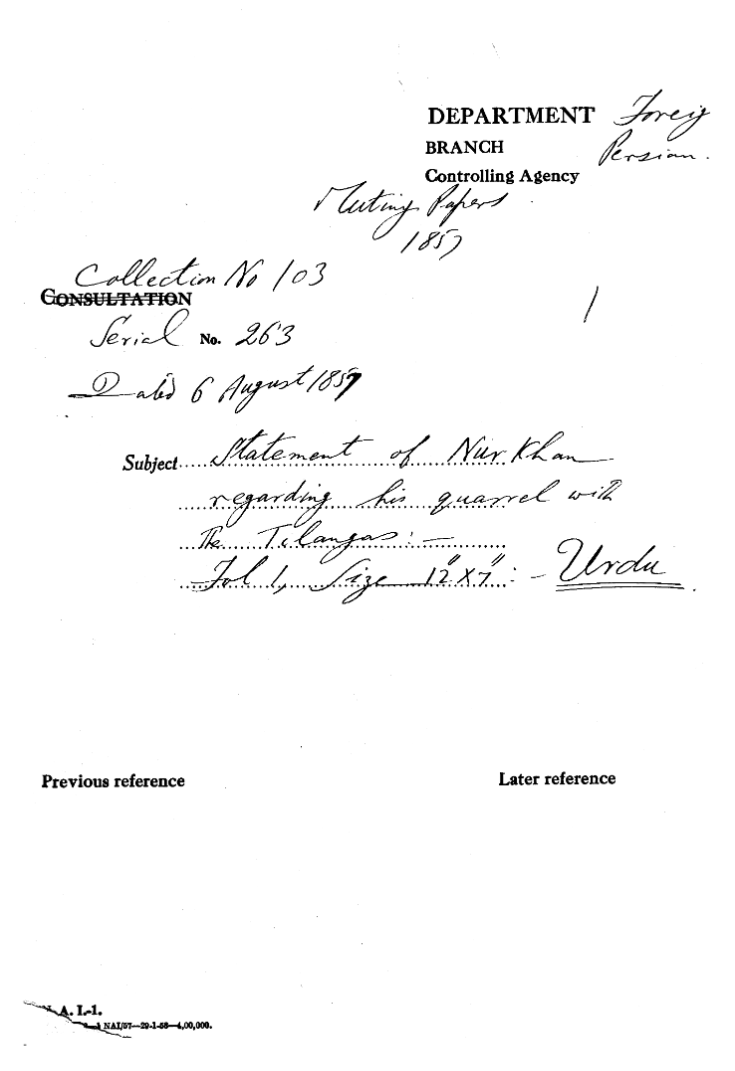 DEPARTMENT Foreig
BRANCH Persian.
Controlling Agency
Mutiny Papers
1857
Collection No 103
CONSULTATION
1
Serial No. 263
Dated 6 August 1857
Subject Statement of Nur Khan
regarding his quarrel with
The Tilangas: —
Fol 1, Size 12" X 7": - Urdu
Previous reference
Later reference
A. I.-1.
NAI/57—29-1-58—4,00,000.